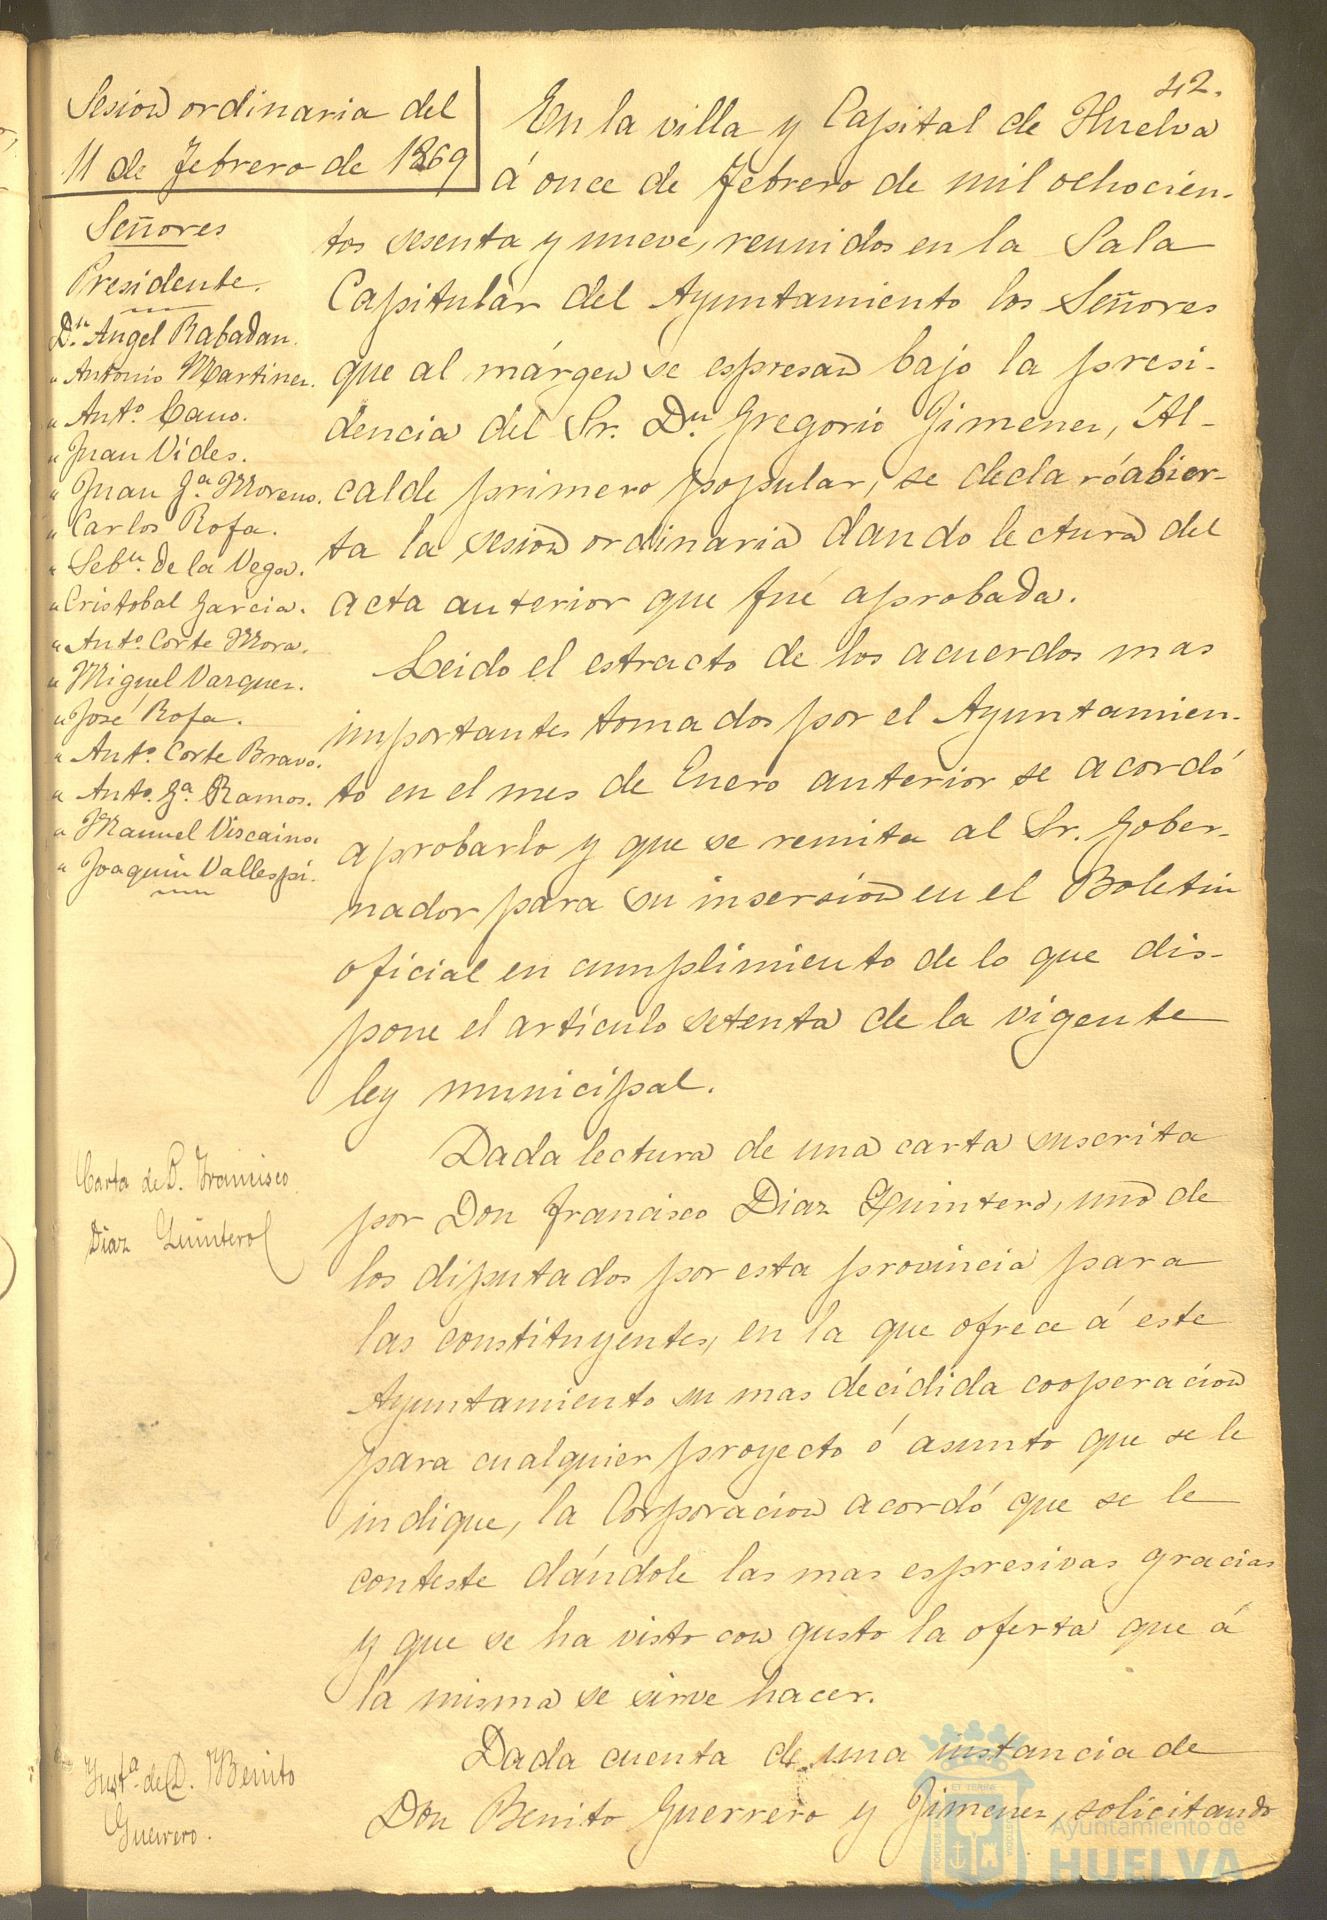 42.
Sesion ordinaria del
11 de Febrero de 1869
Señores
Presidente.
Dn. Angel Rabadan.
" Antonio Martinez.
" Anto. Cano.
" Juan Vides.
" Juan Ga. Moreno.
" Carlos Rofa.
" Sebn. de la Vega.
" Cristobal Garcia.
" Anto. Corte Mora.
" Miguel Vazquez.
" José Rofa.
" Anto. Corte Bravo.
" Anto. Ga. Ramos.
" Manuel Viscaino.
" Joaquin Vallespi.
En la villa y Capital de Huelva
á once de Febrero de mil ochocien-
tos sesenta y nueve, reunidos en la Sala
Capitular del Ayuntamiento los Señores
que al márgen se espresan bajo la presi-
dencia del Sr. Dn. Gregorio Gimenez, Al-
calde primero popular, se declaró abier-
ta la sesion ordinaria dando lectura del
acta anterior que fué aprobada.
Leido el estracto de los acuerdos mas
importantes tomados por el Ayuntamien-
to en el mes de Enero anterior se acordó
aprobarlo y que se remita al Sr. Gober-
nador para su insersion en el Boletin
oficial en cumplimiento de lo que dis-
pone el artículo setenta de la vigente
ley municipal.
Carta de D. Francisco
Diaz Quintero
Dada lectura de una carta suscrita
por Don Francisco Diaz Quintero, uno de
los diputados por esta provincia para
las constituyentes, en la que ofrece á este
Ayuntamiento su mas decidida cooperacion
para cualquier proyecto ó asunto que se le
indique, la Corporacion acordó que se le
conteste dándole las mas espresivas gracias
y que se ha visto con gusto la oferta que á
la misma se sirve hacer.
Insta. de D. Benito
Guerrero.
Dada cuenta de una instancia de
Don Benito Guerrero y Jimenez, solicitando
Ayuntamiento de
HUELVA